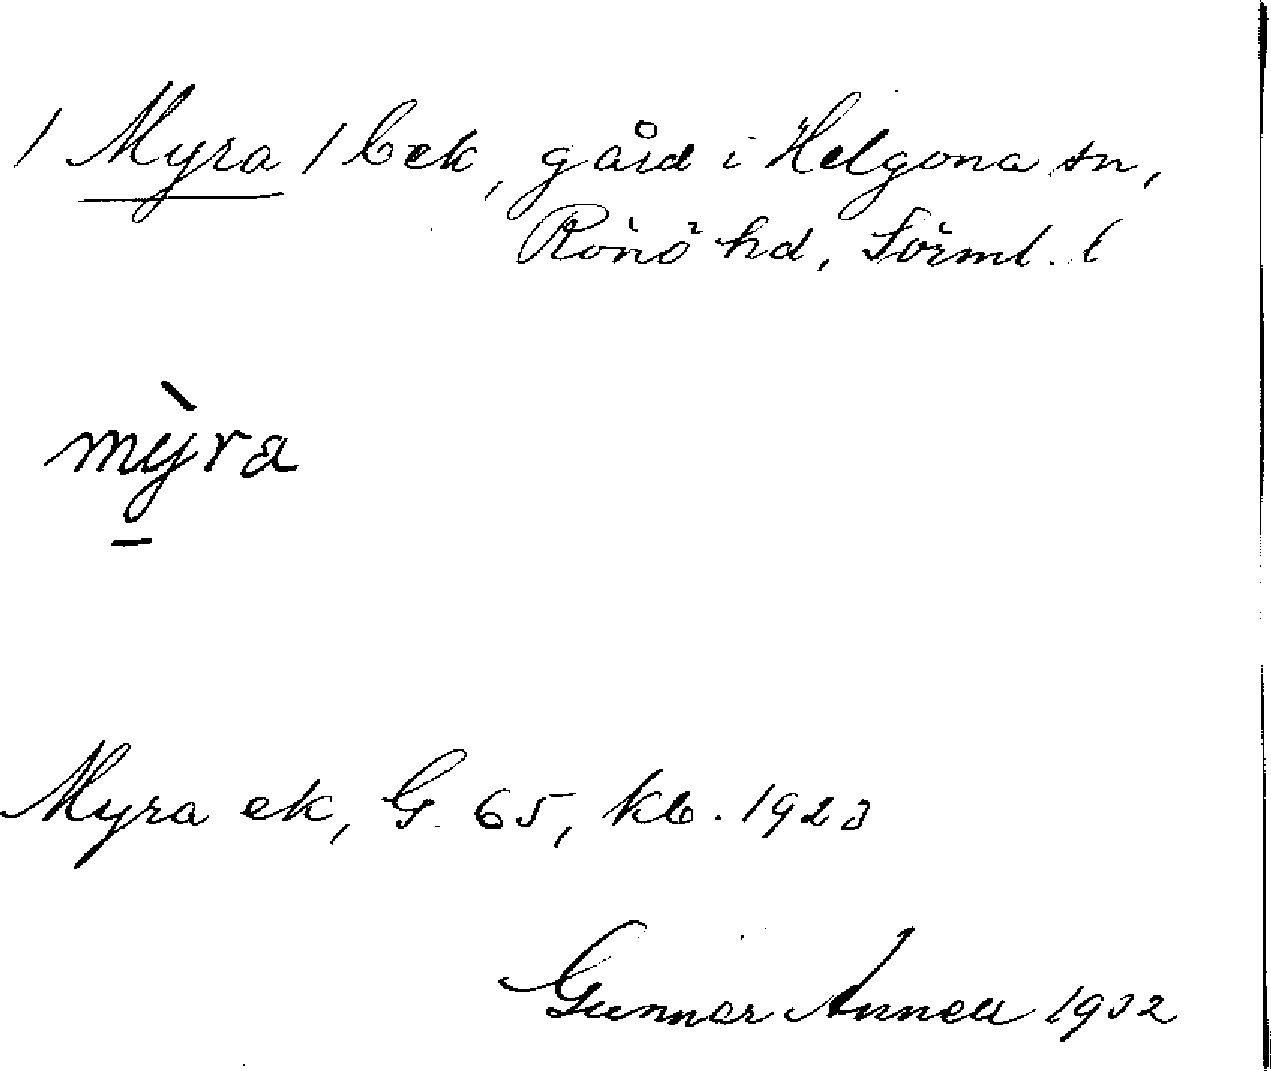 / Myra / bek, gård i Helgona sn,
Rönö hd, Sörml. l
mỳra
Myra ek, G. 65, kb. 1923
Gunnar Annell 1932